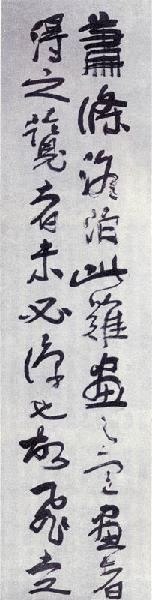 蕭條澹泊此難畫之意畫者
得之覽者未必識也故飛走